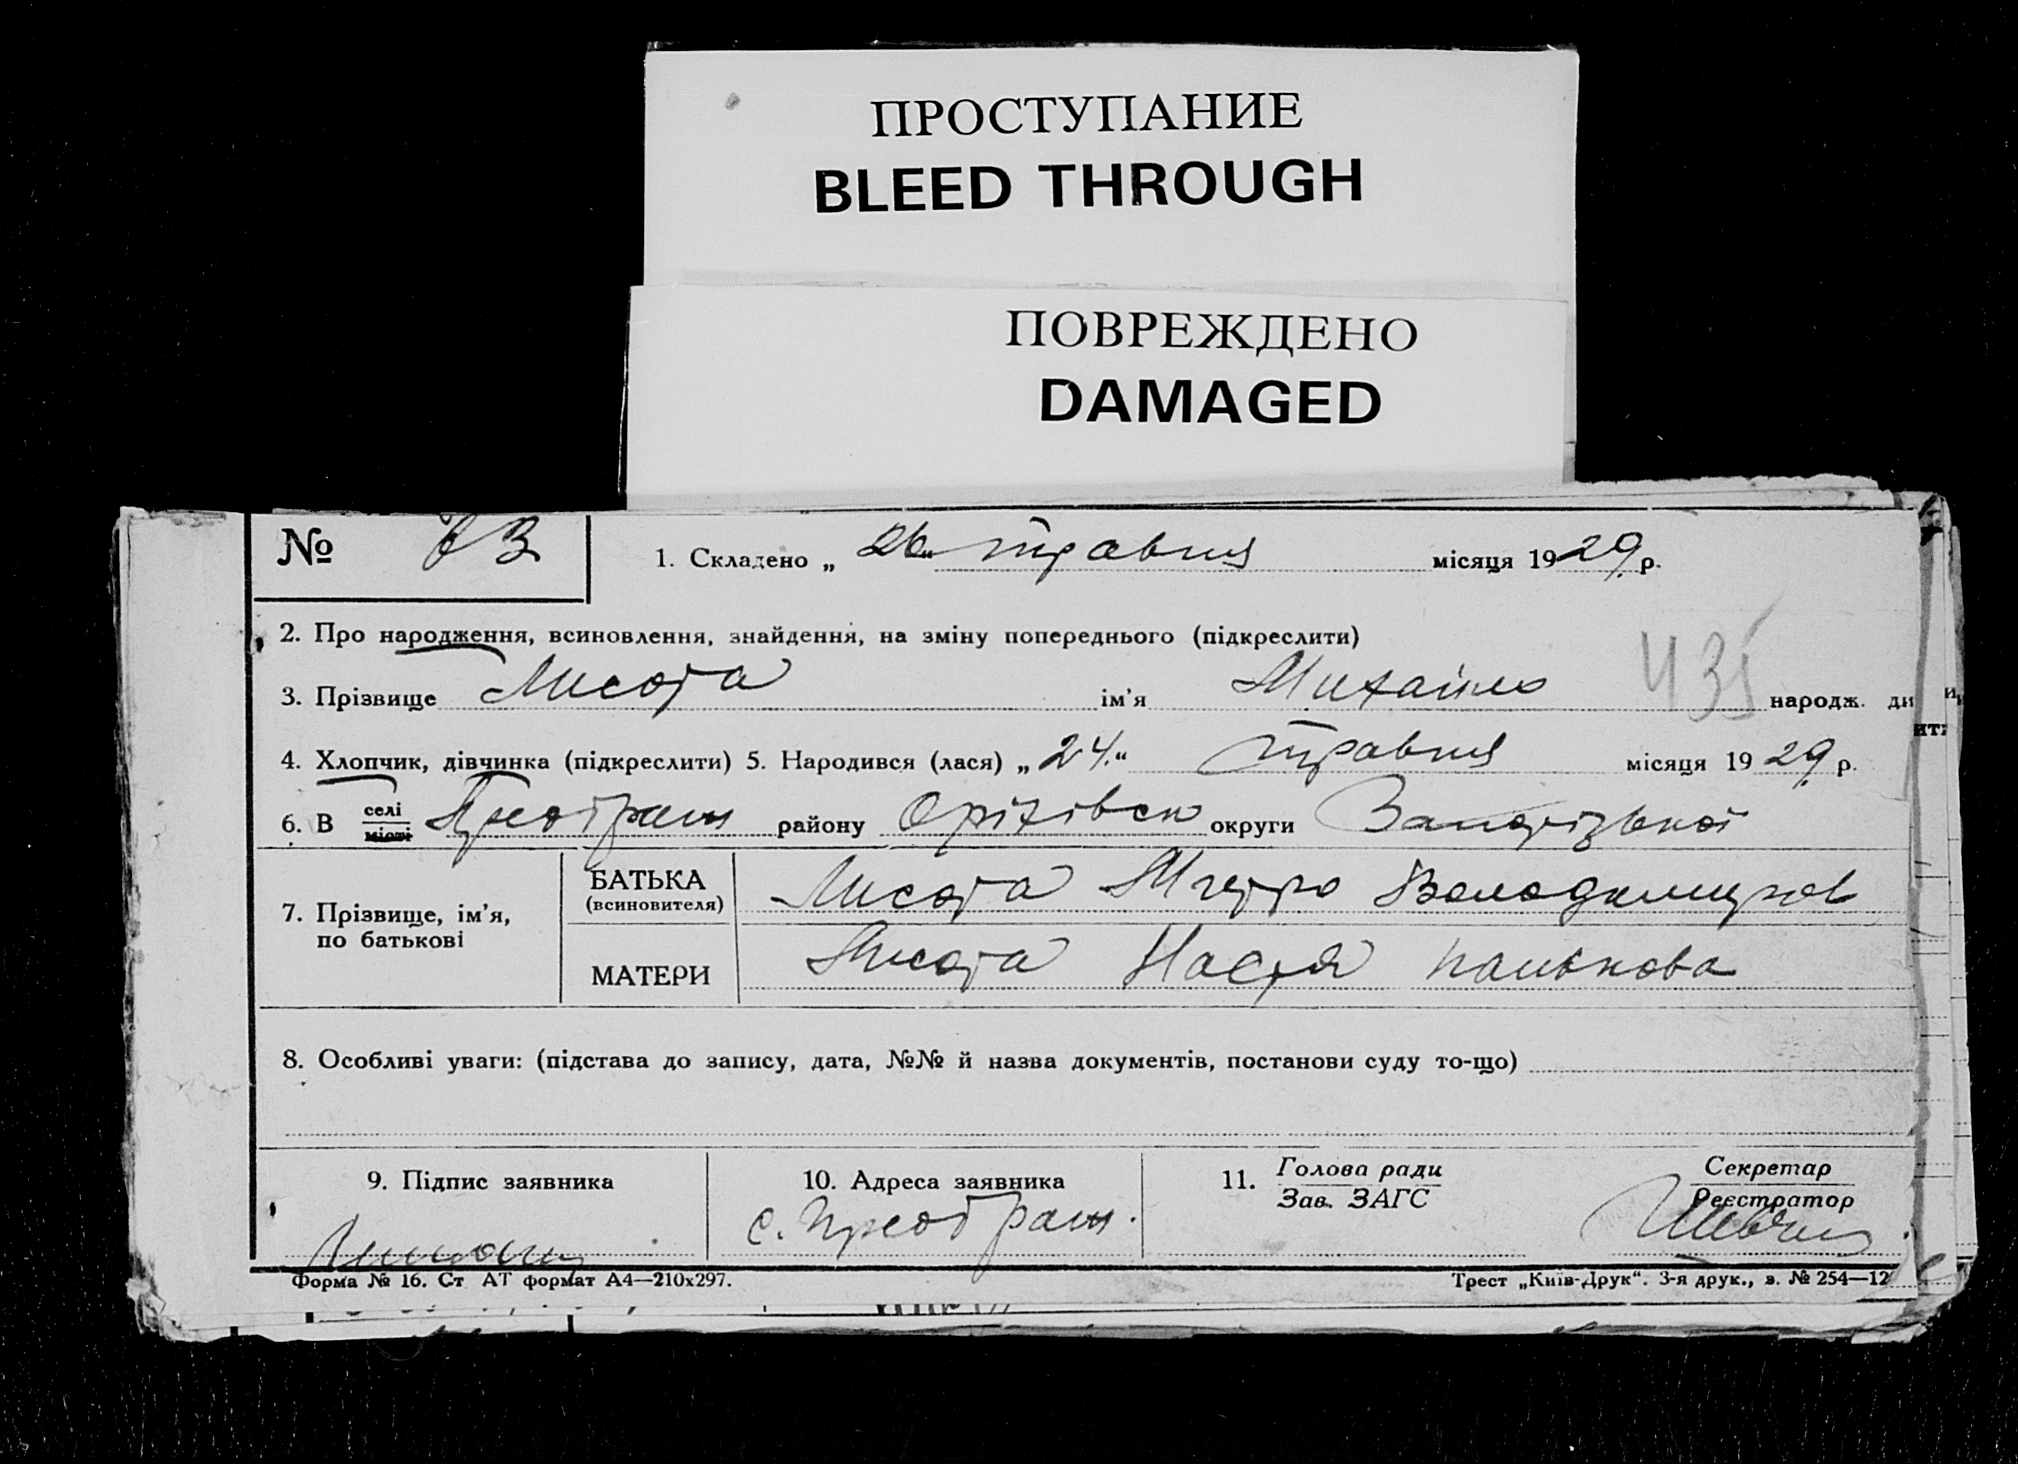 ПРОСТУПАНИЕ
BLEED THROUGH
ПОВРЕЖДЕНО
DAMAGED
№ 63 1. Складено „ 26 “ травня місяця 1929 р.
2. Про народження, всиновлення, знайдення, на зміну попереднього (підкреслити)
435
3. Прізвище Лисота ім’я Михайло народж. ди
4. Хлопчик, дівчинка (підкреслити) 5. Народився (лася) „24.“ травня місяця 1929 р.
6. В селі Преображ району Оріхівськ округи Запорізької
місті
7. Прізвище, ім’я, по батькові
БАТЬКА (всиновителя) Лисота Володимиров
МАТЕРИ Лисота Настя Панькова
8. Особливі уваги: (підстава до запису, дата, №№ й назва документів, постанови суду то-що)
9. Підпис заявника 10. Адреса заявника 11. Голова ради Секретар
Зав. ЗАГС Реєстратор
с. Преображ.
Форма № 16. Ст АТ формат А4—210х297. Трест „Київ-Друк“. 3-я друк., з. № 254—12